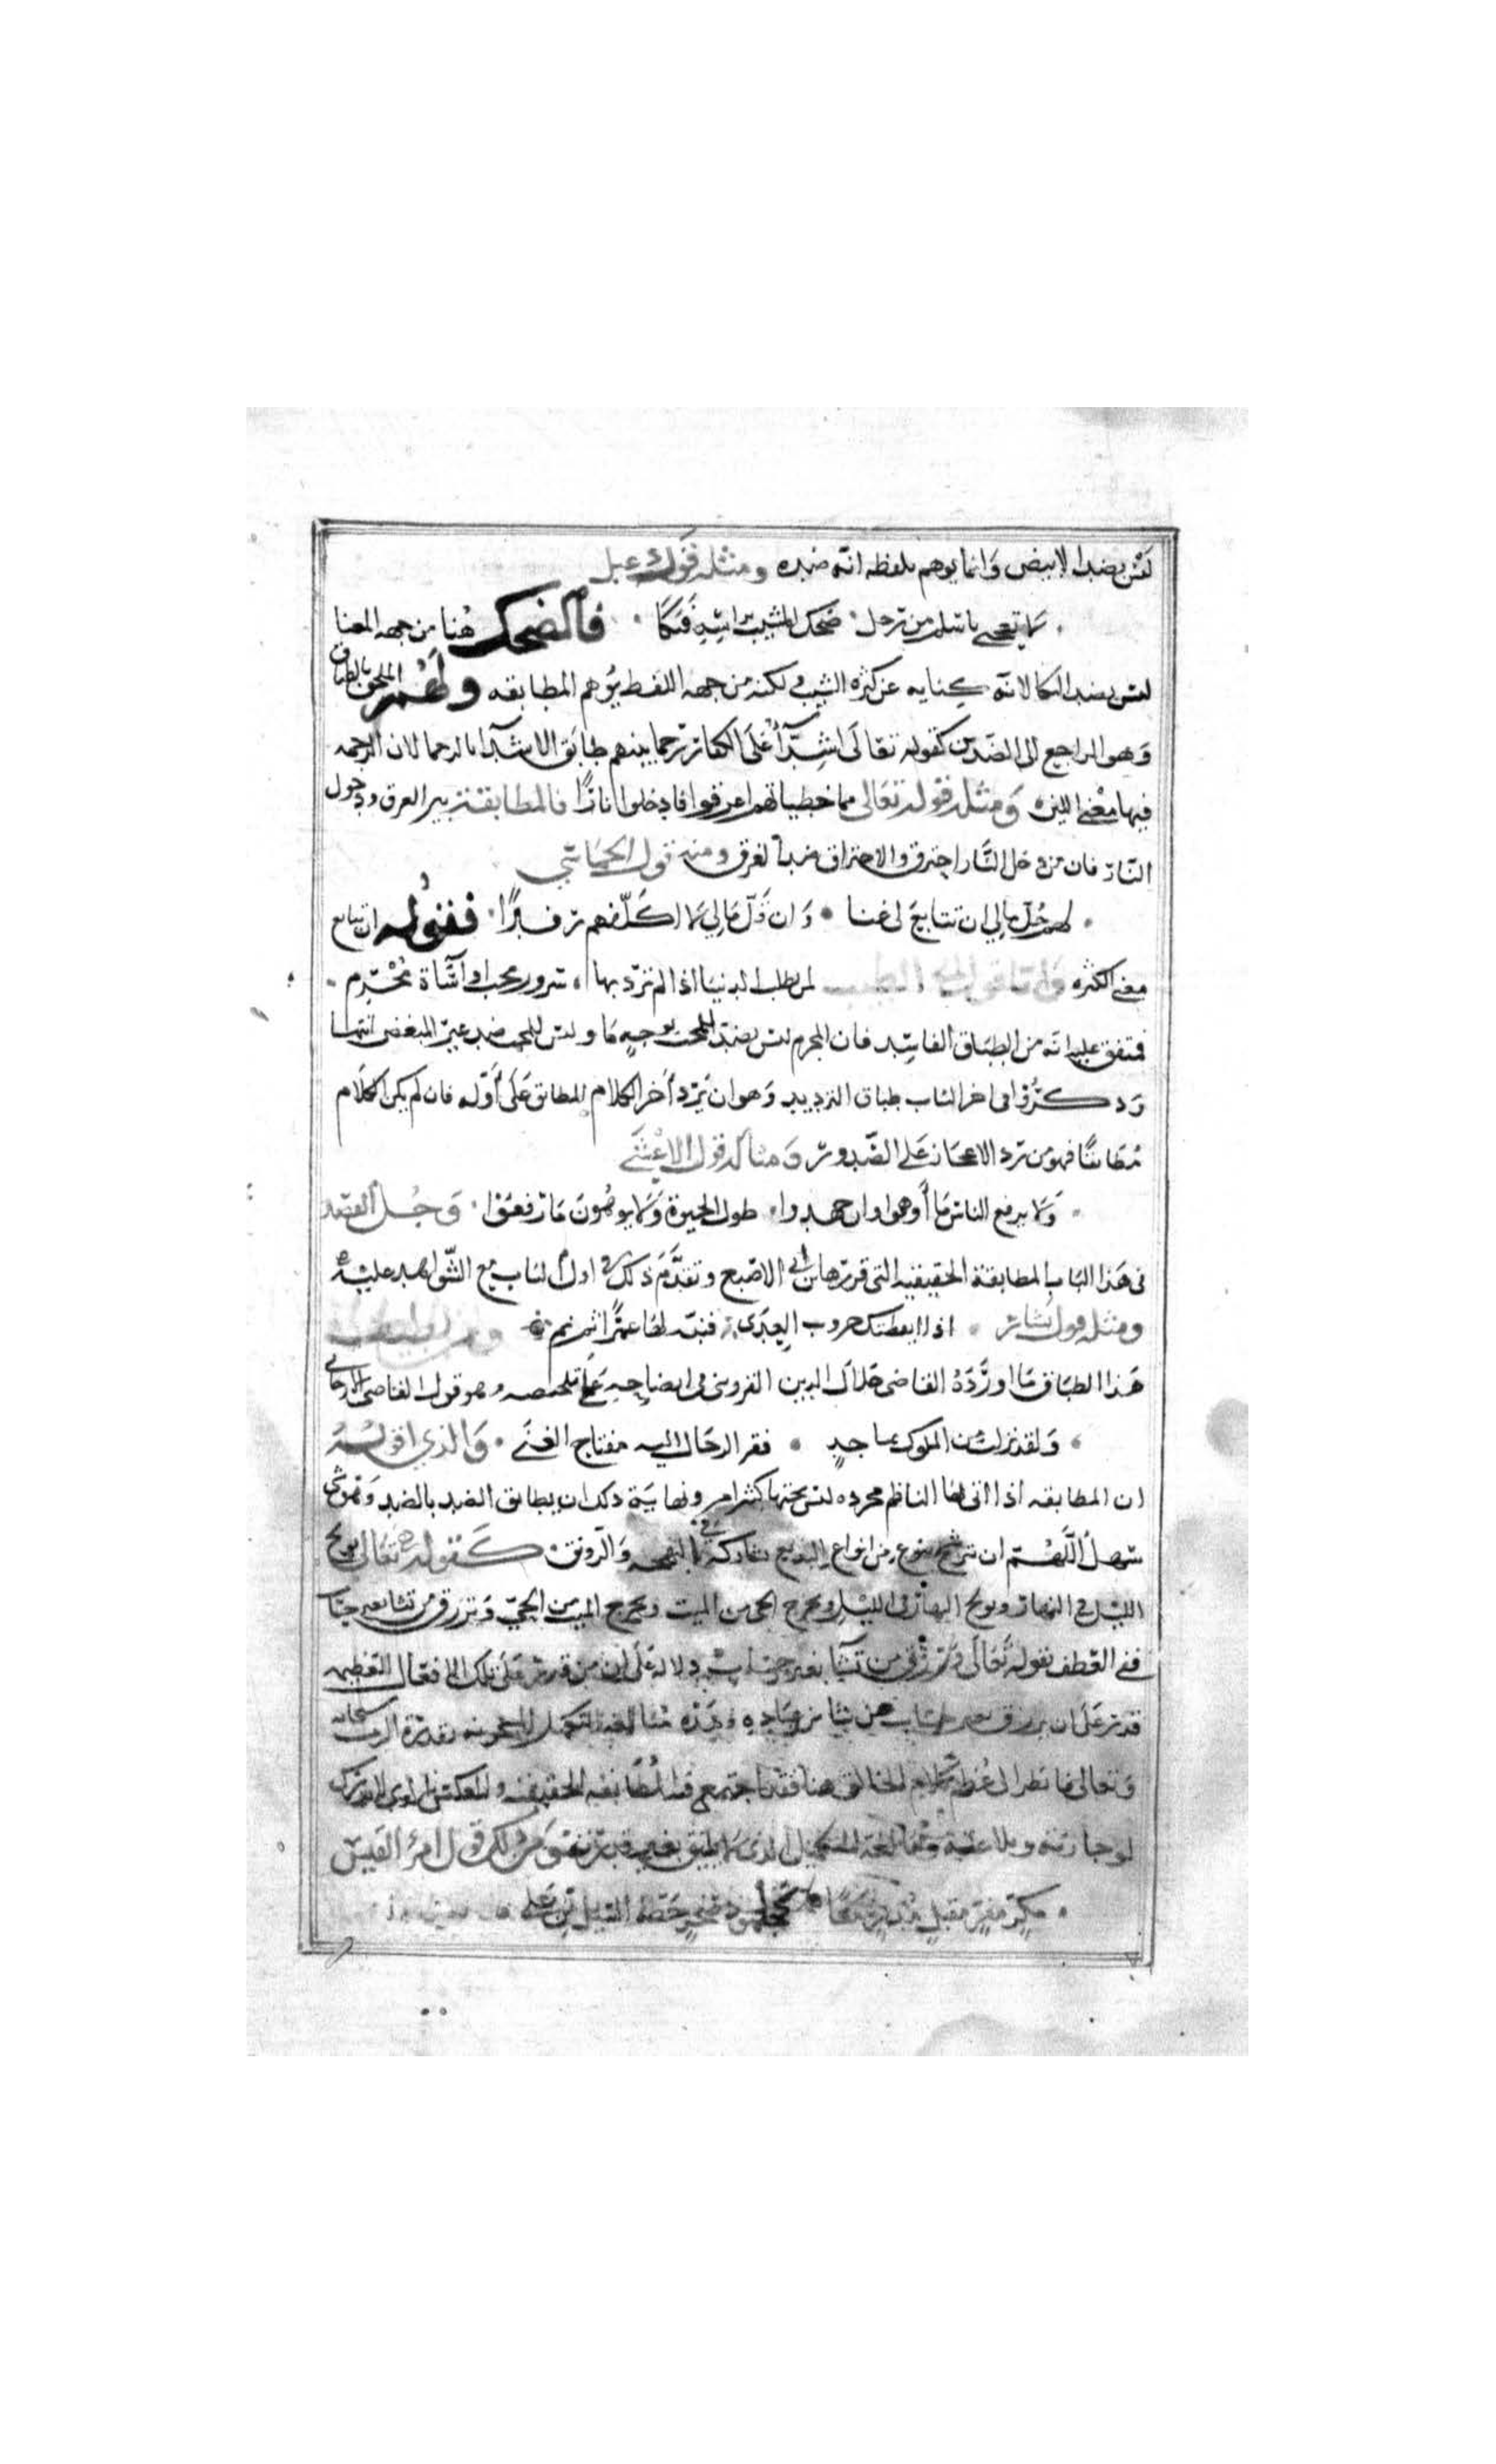 ليس بضد الابيض وانما يوهم بلفظه انه ضده ومثله قول دعبل
لا تعجبي يا سلم من رجل ضحك المشيب براسه فبكا فالضحك هنا من جهه المعنا
ليس بضد البكا لانه كنايه عن كثره الشيب ولكنه من جهه اللفظ يوهم المطابقه ولهم الملحق بالطباق
وهو الراجع الى الضدين كقوله تعالى اشدآ على الكفار رحما بينهم طابق الاشدآ بالرحما لان الرحمه
فيها معنى اللين ومثله قوله تعالى مما خطياتهم اغرقوا فادخلوا نارًا فالمطابقة بين الغرق ودخول
النار فان من دخل النار احترق والاحتراق ضد الغرق ومنه قول الحماسي
لهم جل مالي ان تتابع لي غنا وان قل مالي لا اكلفهم رفدًا فقوله ان تتابع
معنى الكثره واما قول ابي الطيب لمن تطلب الدنيا اذا لم ترد بها سرور محب او اسآة مجرم
فمتفق عليه انه من الطباق الفاسد فان المجرم ليس بضد للمحب بوجه ما وليس للمحب ضد غير المبغض انتها
وذكروا في اخر الباب طباق الترديد وهو ان يرد آخر الكلام المطابق على أوله فان لم يكن الكلام
مطابقًا فهو من رد الاعجاز على الصدور ومثاله قول الاعشى
ولا يرفع الناس ما أوهوا وان جهدوا طول الحيوة ولا يوهون ما رفعوا وجل القصد
في هذا الباب المطابقة الحقيقيه التي قررها ابن ابي الاصبع وتقدم ذلك في اول الباب مع الشواهد عليه
ومثله قول بشار اذا ايقظتك حروب العدى فنبه لها عمرًا ثم نم
هذا الطباق ما اورده القاضى جلال الدين القزوينى في ايضاحه على تلخيصه وهو قول القاضى الارجاني
ولقد نزلت من الملوك بماجدٍ فقر الرجال اليه مفتاح الغنى والذي اقوله
ان المطابقه اذا اتى بها الناظم مجرده ليس تحتها كبير امر ونهاية ذلك ان يطابق الضد بالضد وهو شي
سهل اللهم ان ترشح بنوع من انواع البديع تشاركه في البهجه والرونق كقوله تعالى تولج
الليل في النهار وتولج النهار في الليل وتخرج الحى من الميت وتخرج الميت من الحي وترزق من تشا بغير حساب
ففي العطف بقوله تعالى وترزق من تشآ بغير حساب دلالة على ان من قدر على تلك الافعال العظيمه
قدر على ان يرزق بغير حساب من شا من عباده وهذه مبالغه التكميل المشحونه بقدرة الرب سبحانه
وتعالى فانظر الى عظم كلام الخالق هنا فقد اجتمع فيه المطابقه الحقيقيه والعكس الذي لا يدرك
لوجازته وبلاغته ومبالغة التكميل الذى لا يليق بغير قدرته ومن ذلك قول امرؤ القيس
مكرٍ مفرٍ مقبلٍ مدبرٍ معًا كجلمود صخرٍ حطه السيل من على